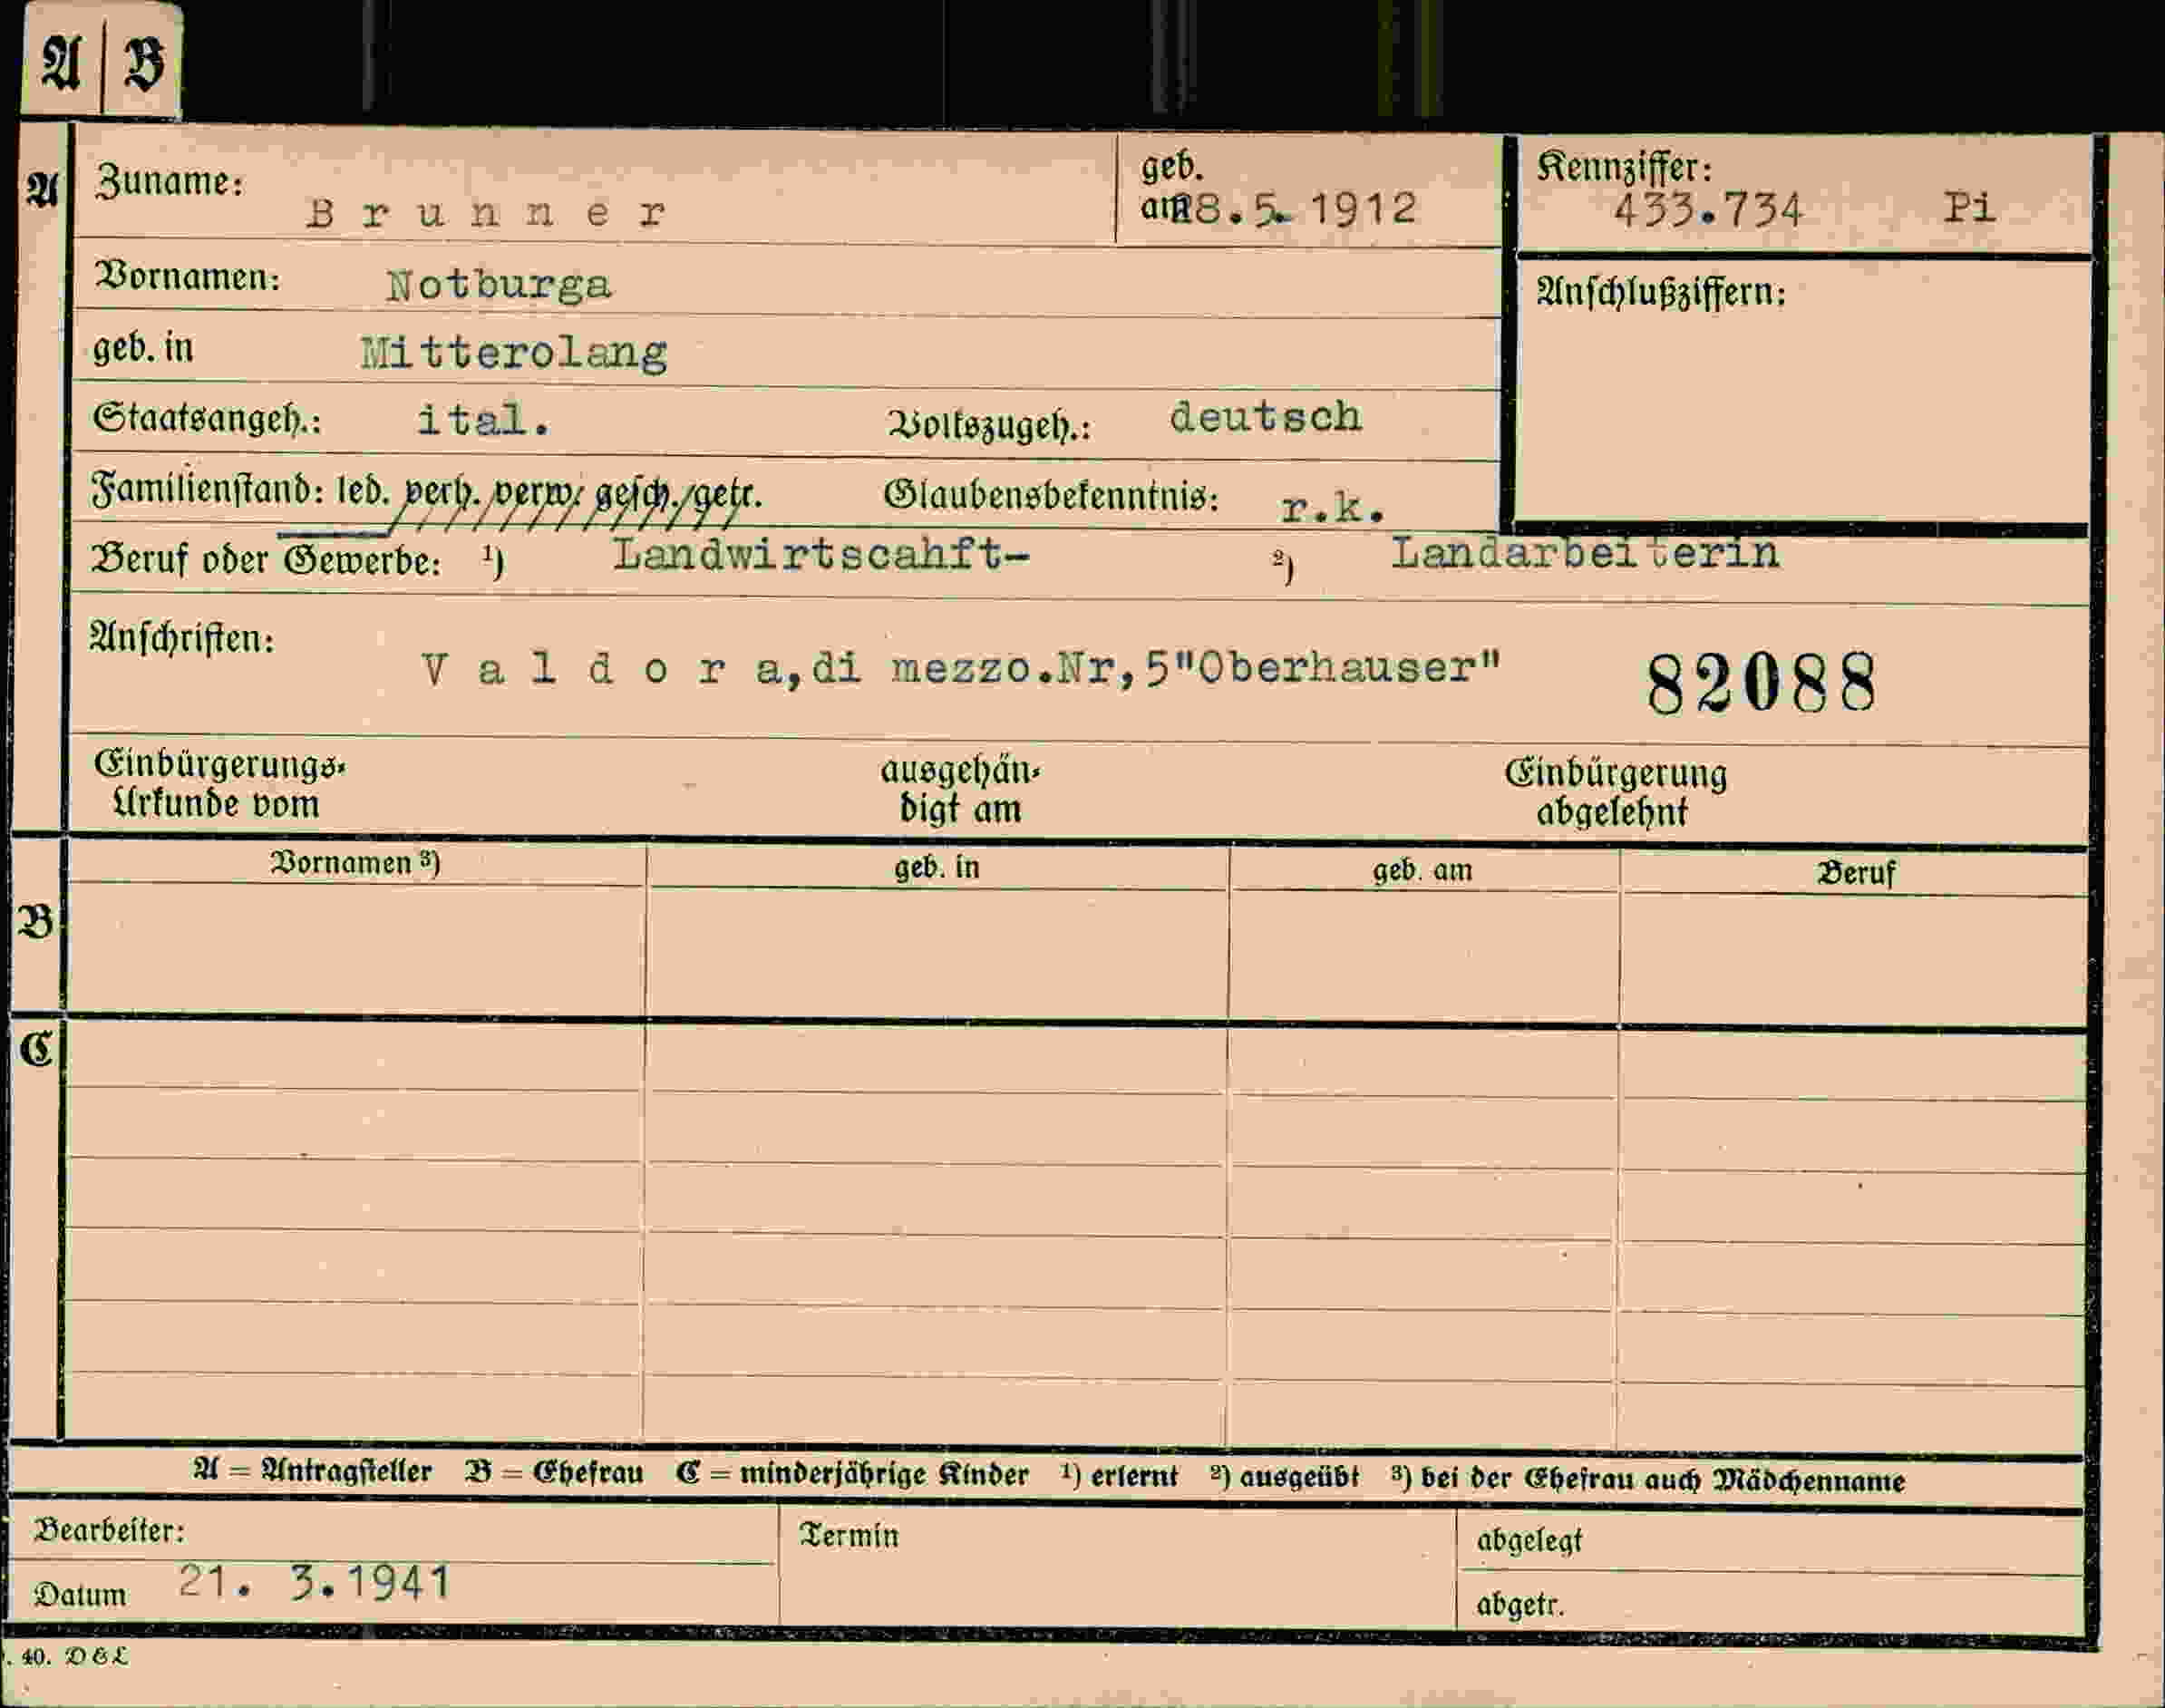 A | B
A Zuname: Brunner geb. am 28.5. 1912 Kennziffer: 433.734 Pi
Vornamen: Notburga Anschlußziffern:
geb. in Mitterolang
Staatsangeh.: ital. Volkszugeh.: deutsch
Familienstand: led. verh. verw. gesch. getr. Glaubensbekenntnis: r.k.
Beruf oder Gewerbe: ¹) Landwirtscahft- ²) Landarbeiterin
Anschriften: Valdora,di mezzo.Nr,5"Oberhauser" 82088
Einbürgerungs- ausgehän- Einbürgerung
Urkunde vom digt am abgelehnt
Vornamen ³) geb. in geb. am Beruf
B
C
A = Antragsteller B = Ehefrau C = minderjährige Kinder ¹) erlernt ²) ausgeübt ³) bei der Ehefrau auch Mädchenname
Bearbeiter: Termin abgelegt
Datum 21. 3.1941 abgetr.
. 40. D & L